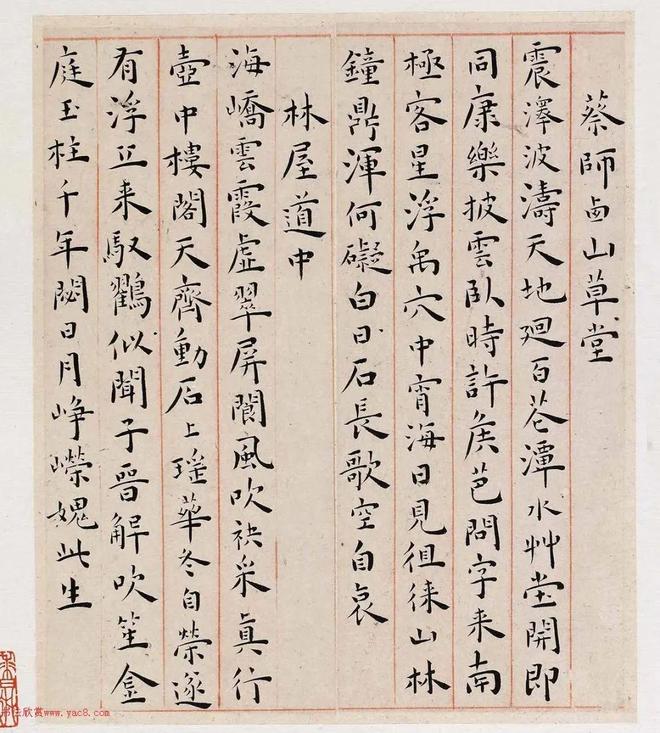 蔡師卥山草堂
震澤波濤天地廻百花潭水艸堂開即
同康樂披雲臥時許侯芭問字来南
極客星浮禹穴中宵海日見徂徠山林
鐘鼎渾何礙白日石長歌空自哀
林屋道中
海嶠雲霞虛翠屏閬風吹袂采真行
壺中樓閣天齊動石上瑤華冬自榮遂
有浮丘来馭鶴似聞子晉解吹笙金
庭玉柱千年閟日月崢嶸媿此生
书法欣赏www.yac8.com